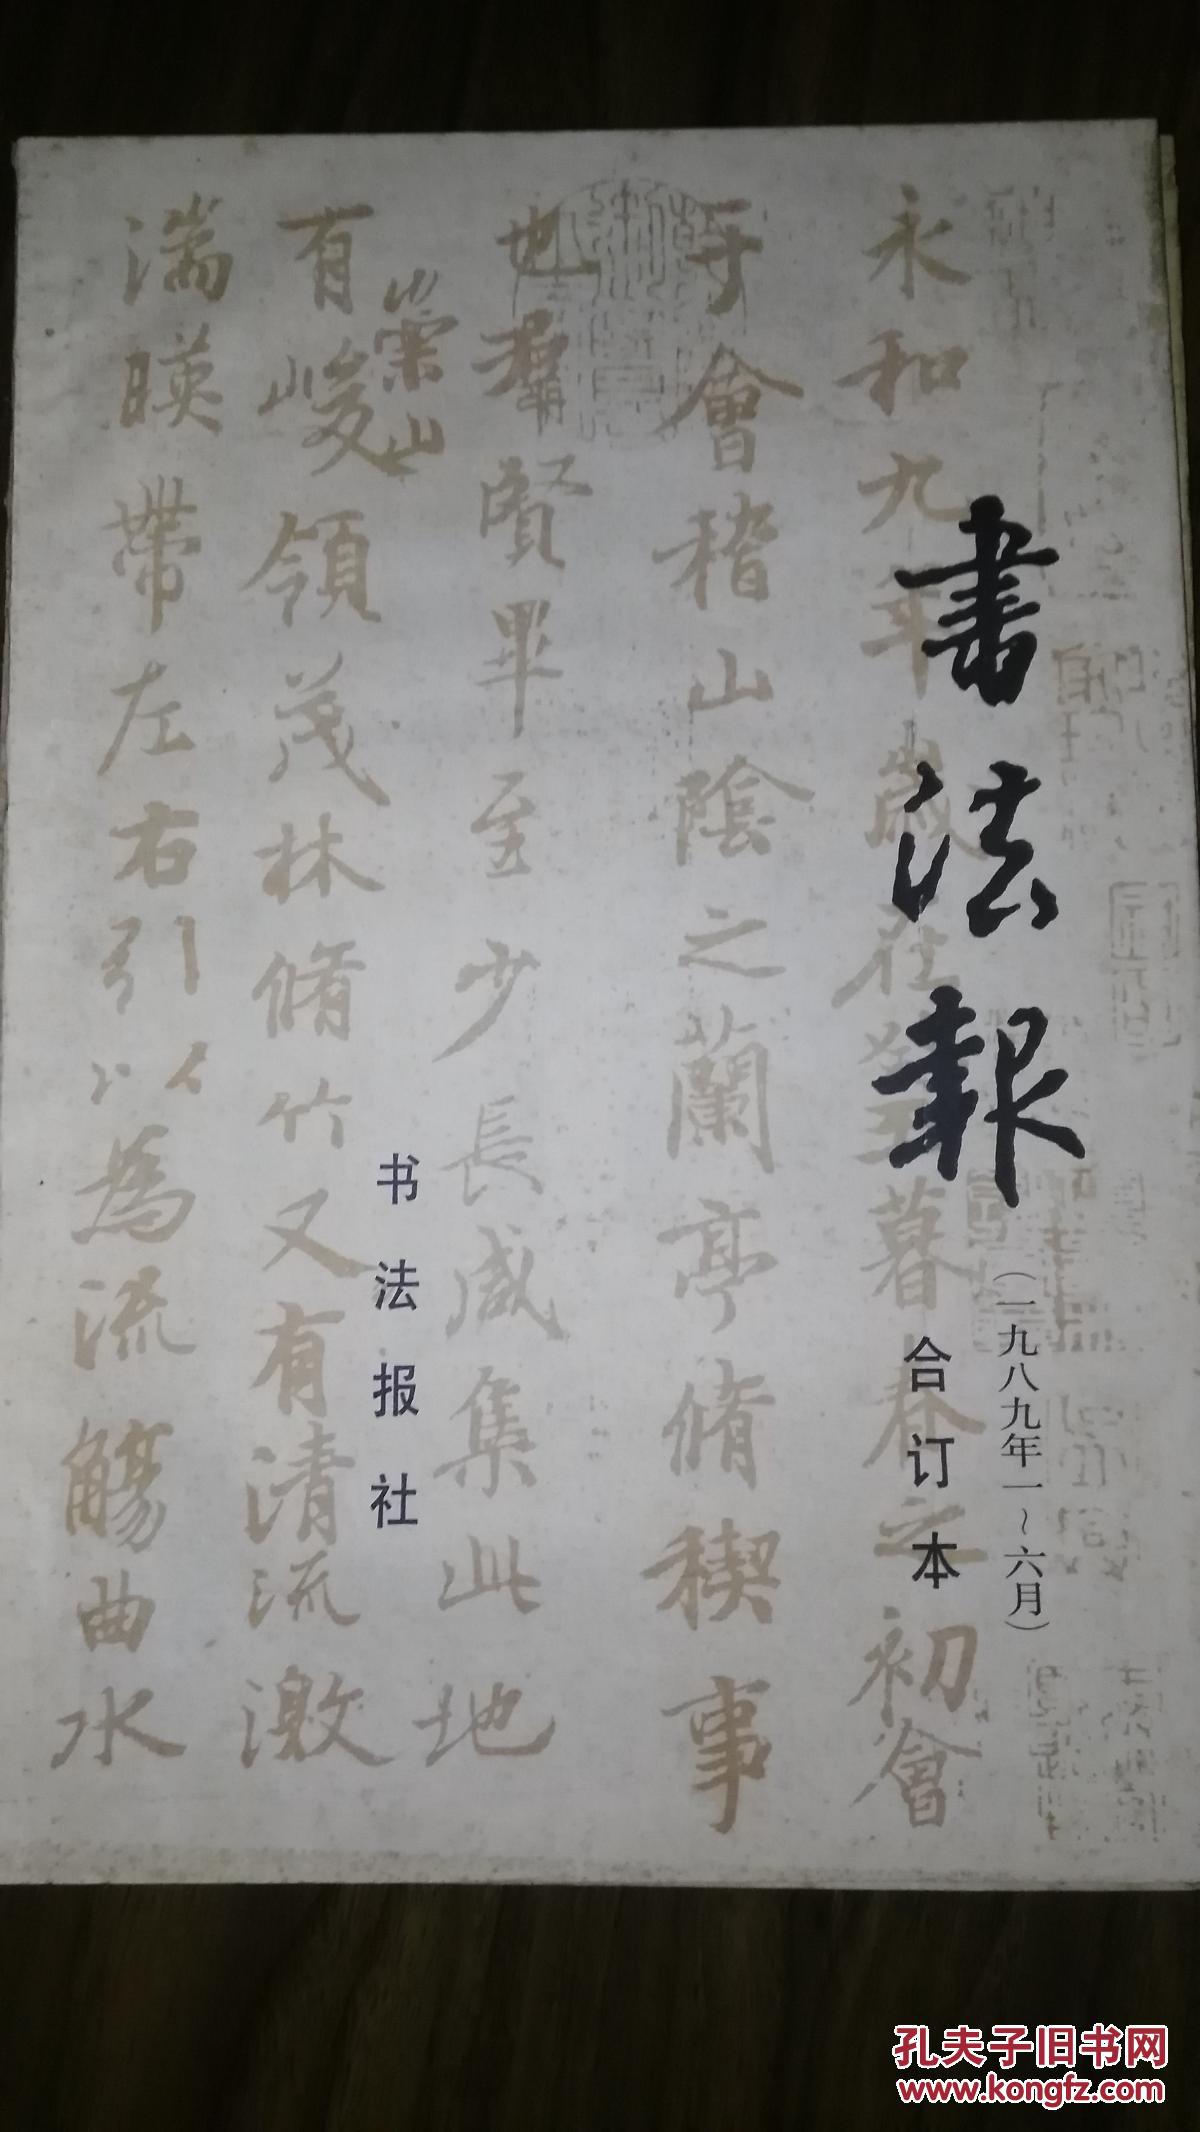 書法報
（一九八九年一～六月）
合订本
书法报社
永和九年歲在癸丑暮春之初會
于會稽山陰之蘭亭脩稧事
也羣賢畢至少長咸集此地
有崇山峻領茂林脩竹又有清流激
湍暎帶左右引以為流觴曲水
孔夫子旧书网
www.kongfz.com